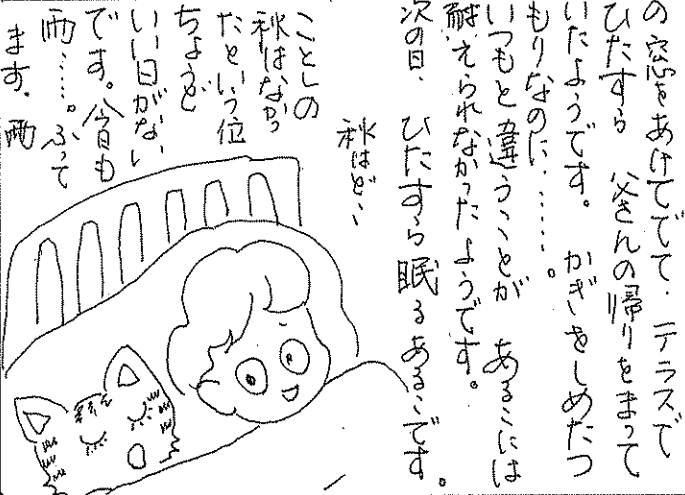 の窓をあけてでて、テラスで
ひたすら 父さんの帰りをまって
いたようです。 かぎをしめたつ
もりなのに……。
いつもと違うことが あるこには
耐えられなかったようです。
次の日、 ひたすら眠るあるこです。
秋はど、、
ことしの
秋はなかっ
たという位
ちょうど
いい日がない
です。今日も
雨……。ふって
ます。雨